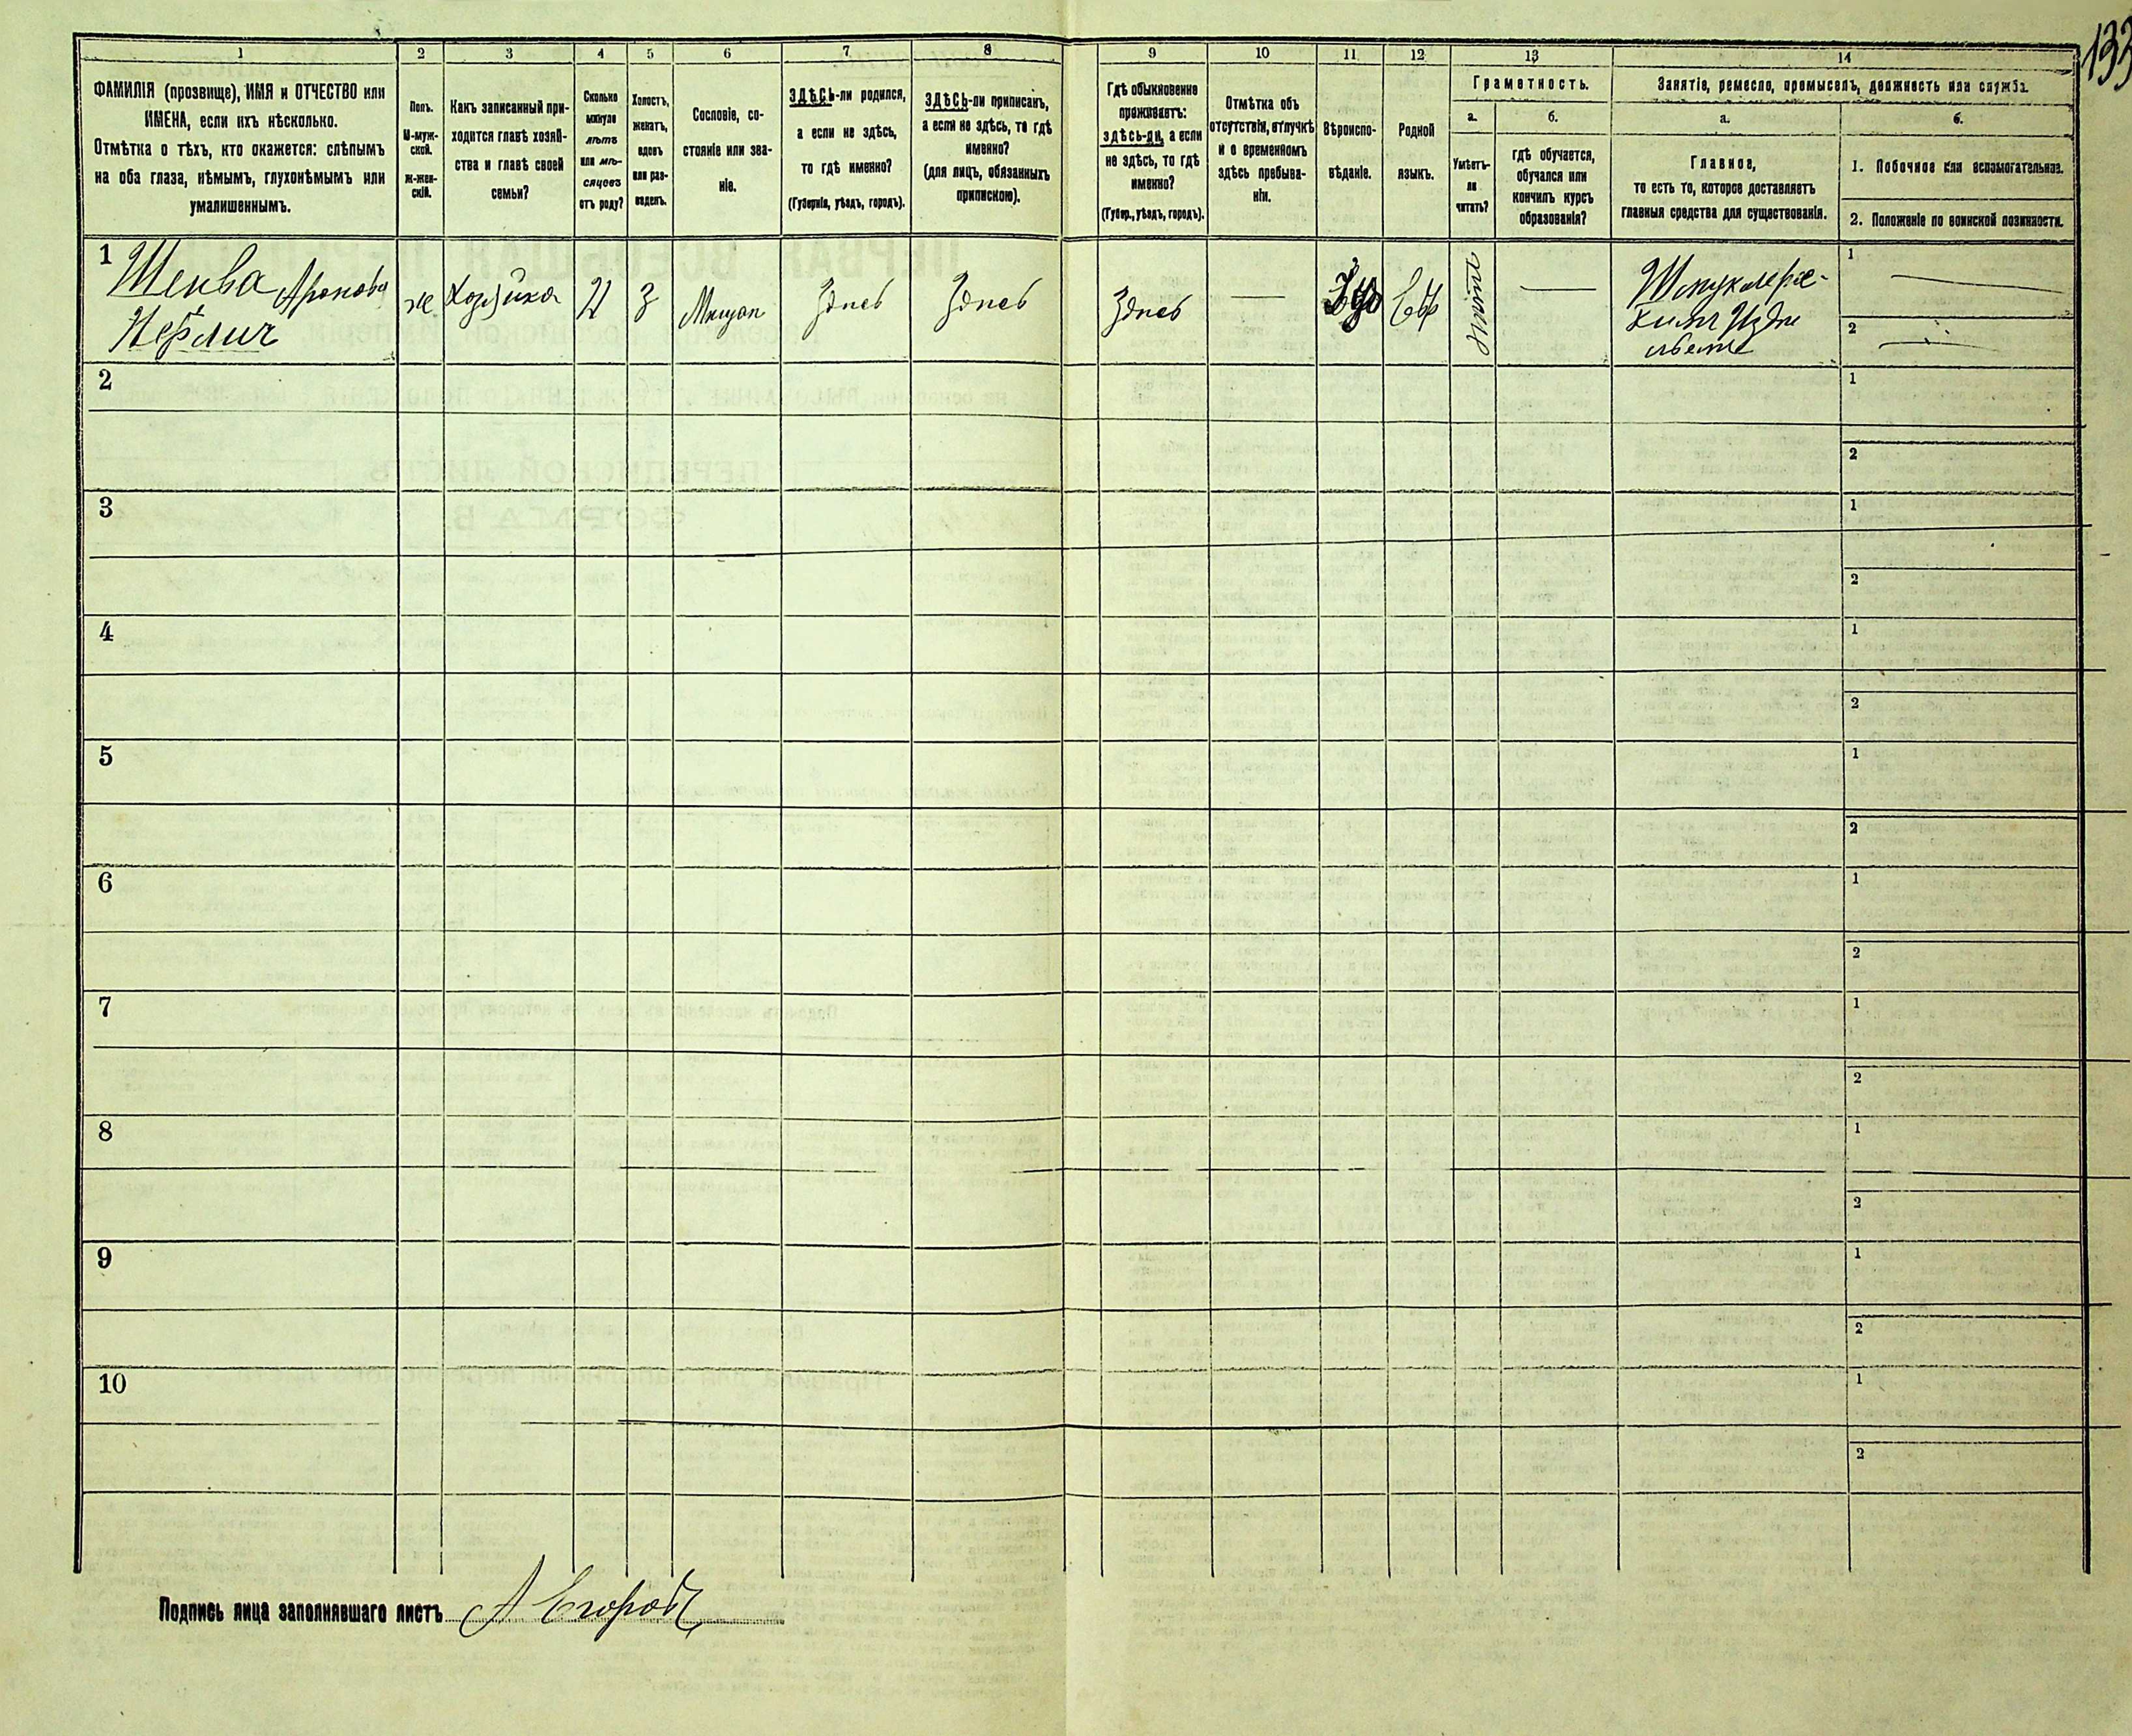 133
1
2
3
4
5
6
7
8
9
10
11
12
13
14
ФАМИЛІЯ (прозвище), ИМЯ и ОТЧЕСТВО или
ИМЕНА, если ихъ нѣсколько.
Отмѣтка о тѣхъ, кто окажется: слѣпымъ
на оба глаза, нѣмымъ, глухонѣмымъ или
умалишеннымъ.
Полъ.
М-муж-
ской.
Ж-жен-
скій.
Какъ записанный при-
ходится главѣ хозяй-
ства и главѣ своей
семьи?
Сколько
минуло
лѣтъ
или мѣ-
сяцевъ
отъ роду?
Холостъ,
женатъ,
вдовъ
или раз-
веденъ.
Сословіе, со-
стояніе или зва-
ніе.
ЗДѢСЬ-ли родился,
а если не здѣсь,
то гдѣ именно?
(Губернія, уѣздъ, городъ).
ЗДѢСЬ-ли приписан,
а если не здѣсь, то гдѣ
именно?
(для лицъ, обязанныхъ
припискою).
Гдѣ обыкновенно
проживаетъ:
здѣсь-ли, а если
не здѣсь, то гдѣ
именно?
(Губер., уѣздъ, городъ).
Отмѣтка объ
отсутствіи, отлучкѣ
и о временномъ
здѣсь пребыва-
ніи.
Вѣроиспо-
вѣданіе.
Родной
языкъ.
Грамотность.
а.
Умѣетъ-
ли
читать?
б.
гдѣ обучается,
обучался или
кончилъ курсъ
образованія?
Занятіе, ремесло, промыселъ, должность или служба.
а.
Главное,
то есть то, которое доставляетъ
главныя средства для существованія.
б.
1. Побочное или вспомогательное.
2. Положеніе по воинской повинности.
1
Аронова
ж
Хозяйка
З
Мѣщан
Здесь
Здесь
Здесь
—
Іуд
Евр
—
1 —
2 —
2
1
2
3
1
2
4
1
2
5
1
2
6
1
2
7
1
2
8
1
2
9
1
2
10
1
2
Подпись лица заполнявшаго листъ А Егоровъ